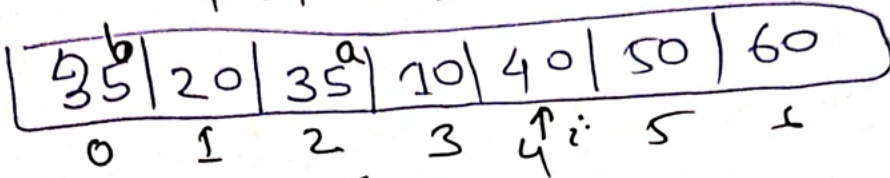 35b | 20 | 35a | 10 | 40 | 50 | 60
0 1 2 3 4 i 5 6